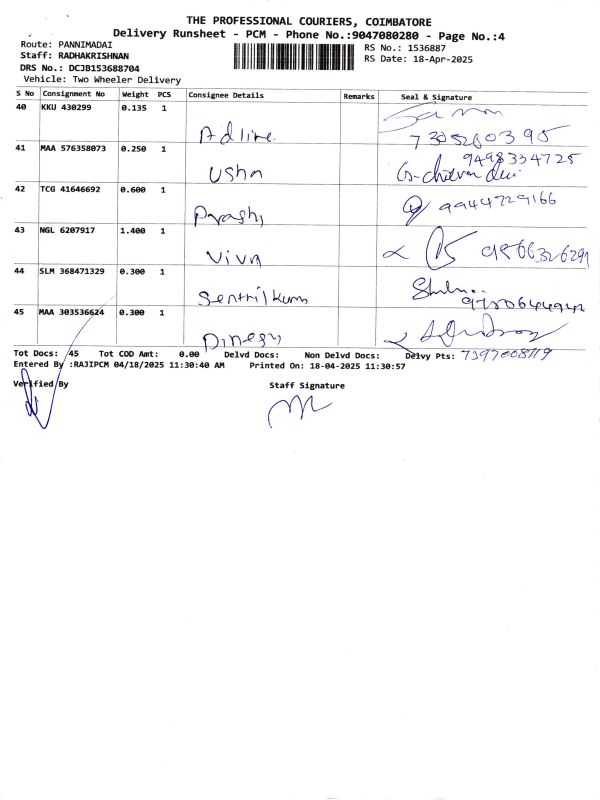 THE PROFESSIONAL COURIERS, COIMBATORE
Delivery Runsheet - PCM - Phone No.:9047080280 - Page No.:4
Route: PANNIMADAI
RS No.: 1536887
Staff: RADHAKRISHNAN
RS Date: 18-Apr-2025
DRS No.: DCJB153688704
Vehicle: Two Wheeler Delivery
S No Consignment No Weight PCS Consignee Details Remarks Seal & Signature
40 KKU 430299 0.135 1
Adline 7305260395
41 MAA 576358073 0.250 1
9498334725
Usha
42 TCG 41646692 0.600 1
9944729166
43 NGL 6207917 1.400 1
44 SLM 368471329 0.300 1
Senthilkum
45 MAA 303536624 0.300 1
Dinesh
Tot Docs: 45 Tot COD Amt: 0.00 Delvd Docs: Non Delvd Docs: Delvy Pts: 7397008119
Entered By :RAJIPCM 04/18/2025 11:30:40 AM Printed On: 18-04-2025 11:30:57
Verified By Staff Signature